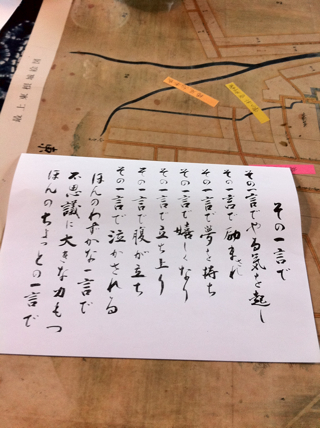 その一言で
その一言でやる気を起し
その一言で励まされ
その一言で夢を持ち
その一言で嬉しくなり
その一言で立ち上り
その一言で腹が立ち
その一言で泣かされる
ほんのわずかな一言で
不思議に大きな力もつ
ほんのちょっとの一言で
最上東根温泉図